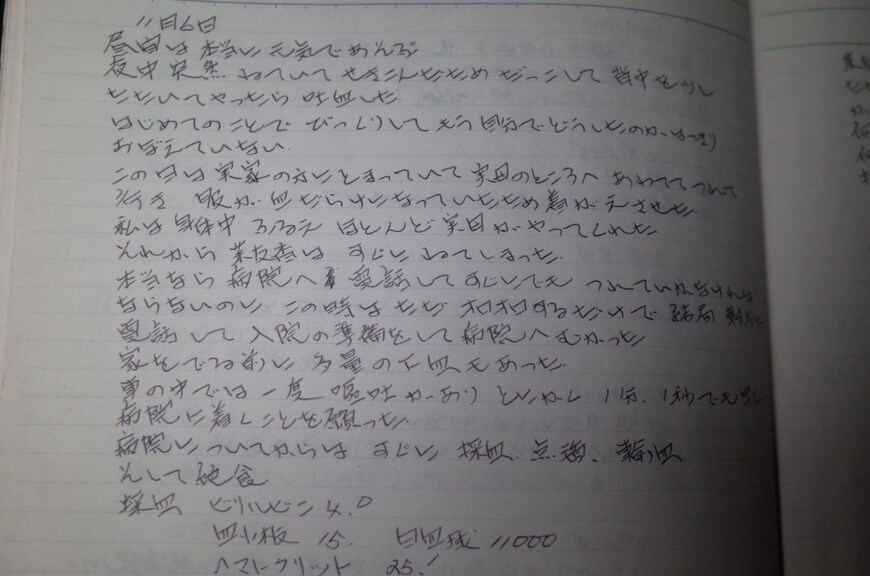 11月6日
昼間は本当に元気であそぶ
夜中突然ねていてせきこんだためだっこして背中を少し
たたいてやったら吐血した
はじめてのことでびっくりしてもう自分でどうしたのかはっきり
おぼえていない
この日は実家の方にとまっていて実母のところへあわててつれて
行き服が血だらけになっていたため着がえさせた
私は身体中ふるえほとんど実母がやってくれた
それから茉友香はすぐにねてしまった
本当なら病院へ電話してすぐにでもつれていかなければ
ならないのにこの時はただオロオロするだけで結局朝
電話して入院の準備をして病院へむかった
家をでる前に多量の下血もあった
車の中では一度嘔吐があり とにかく1分、1秒でも早く
病院に着くことを願った
病院についてからはすぐに採血、点滴、輸血
そして絶食
採血 ビリルビン 4.0
血小板 15. 白血球 11000
ヘマトクリット 25.1